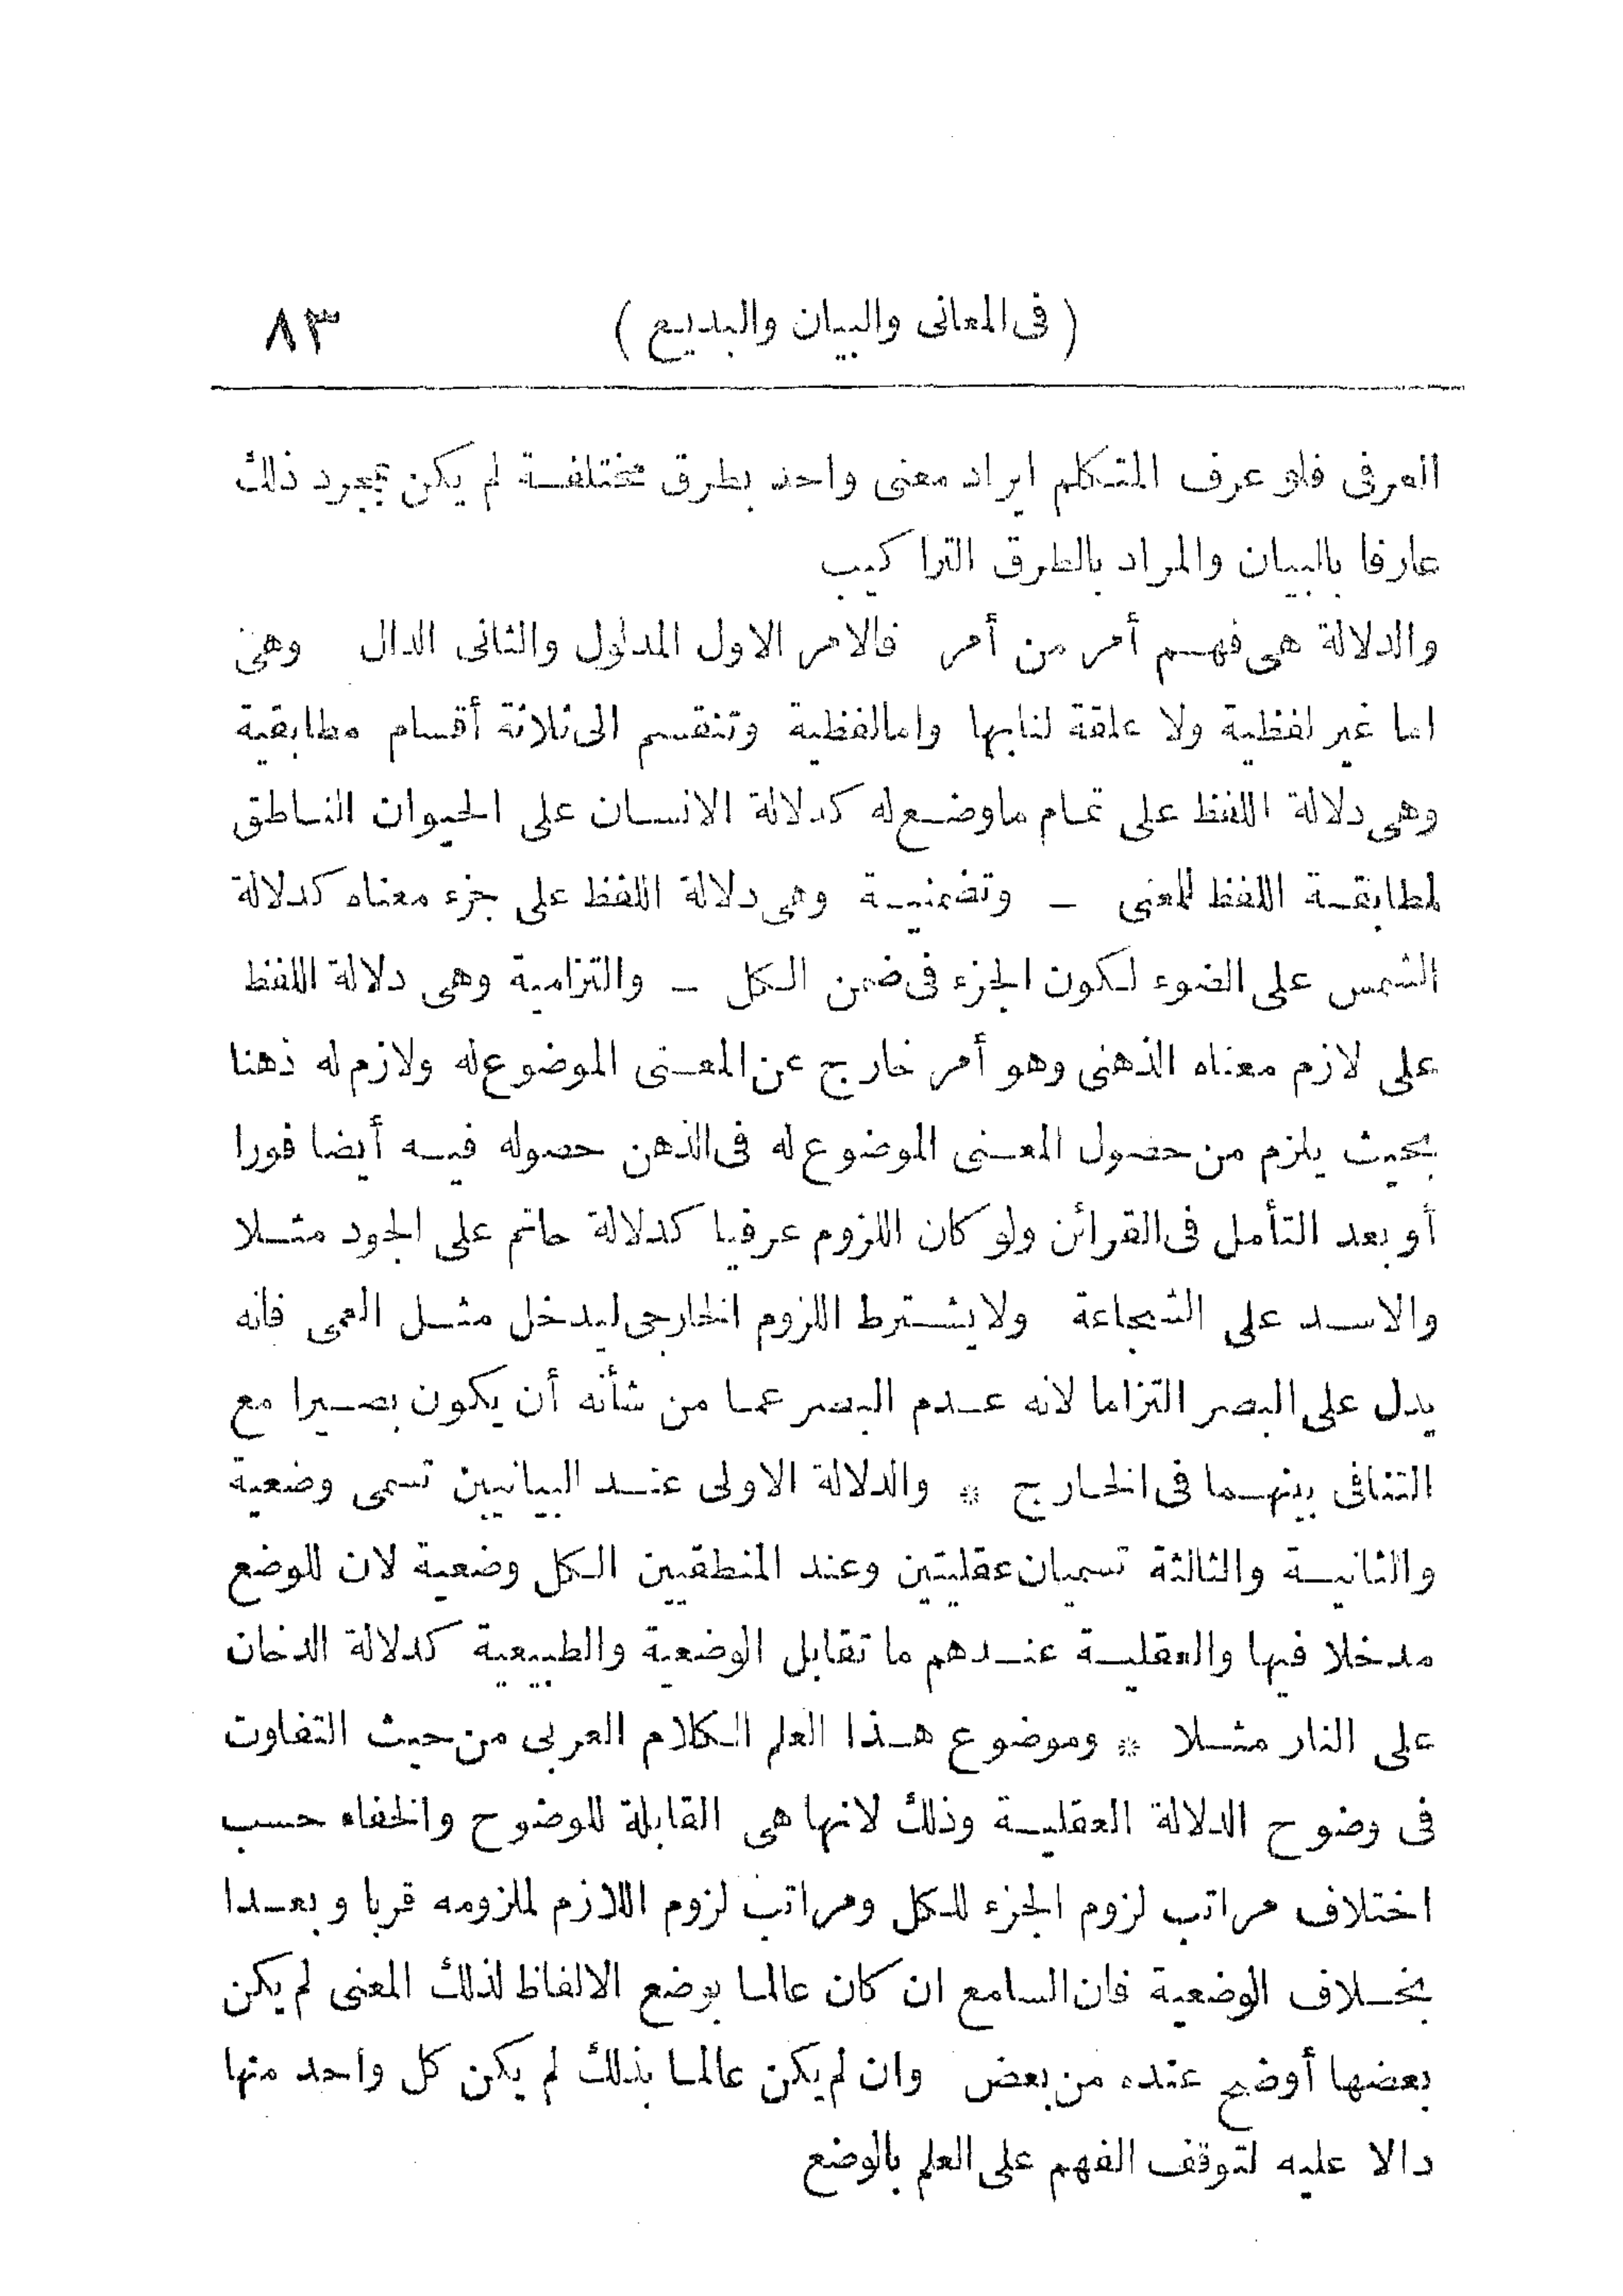 (فى المعانى والبيان والبديع) ٨٣
العرفى فلو عرف المتكلم ايراد معنى واحد بطرق مختلفة لم يكن بمجرد ذلك
عارفا بالبيان والمراد بالطرق التراكيب
والدلالة هى فهم أمر من أمر فالامر الاول المدلول والثانى الدال وهى
اما غير لفظية ولا علقة لنا بها واما لفظية وتنقسم الى ثلاثة أقسام مطابقية
وهى دلالة اللفظ على تمام ما وضع له كدلالة الانسان على الحيوان الناطق
لمطابقة اللفظ للمعنى – وتضمنية وهى دلالة اللفظ على جزء معناه كدلالة
الشمس على الضوء لكون الجزء فى ضمن الكل – والتزامية وهى دلالة اللفظ
على لازم معناه الذهنى وهو أمر خارج عن المعنى الموضوع له ولازم له ذهنا
بحيث يلزم من حضول المعنى الموضوع له فى الذهن حصوله فيه أيضا فورا
أو بعد التأمل فى القرائن ولو كان اللزوم عرفيا كدلالة حاتم على الجود مثلا
والاسد على الشجاعة ولا يشترط اللزوم الخارجى ليدخل مثل العمى فانه
يدل على البصر التزاما لانه عدم البصر عما من شأنه أن يكون بصيرا مع
التنافى بينهما فى الخارج * والدلالة الاولى عند البيانيين تسمى وضعية
والثانية والثالثة تسميان عقليتين وعند المنطقيين الكل وضعية لان للوضع
مدخلا فيها والعقلية عندهم ما تقابل الوضعية والطبيعية كدلالة الدخان
على النار مثلا * وموضوع هذا العلم الكلام العربى من حيث التفاوت
فى وضوح الدلالة العقلية وذلك لانها هى القابلة للوضوح والخفاء حسب
اختلاف مراتب لزوم الجزء للكل ومراتب لزوم اللازم للزومه قربا وبعدا
بخلاف الوضعية فان السامع ان كان عالما بوضع الالفاظ لذلك المعنى لم يكن
بعضها أوضح عنده من بعض وان لم يكن عالما بذلك لم يكن كل واحد منها
دالا عليه لتوقف الفهم على العلم بالوضع